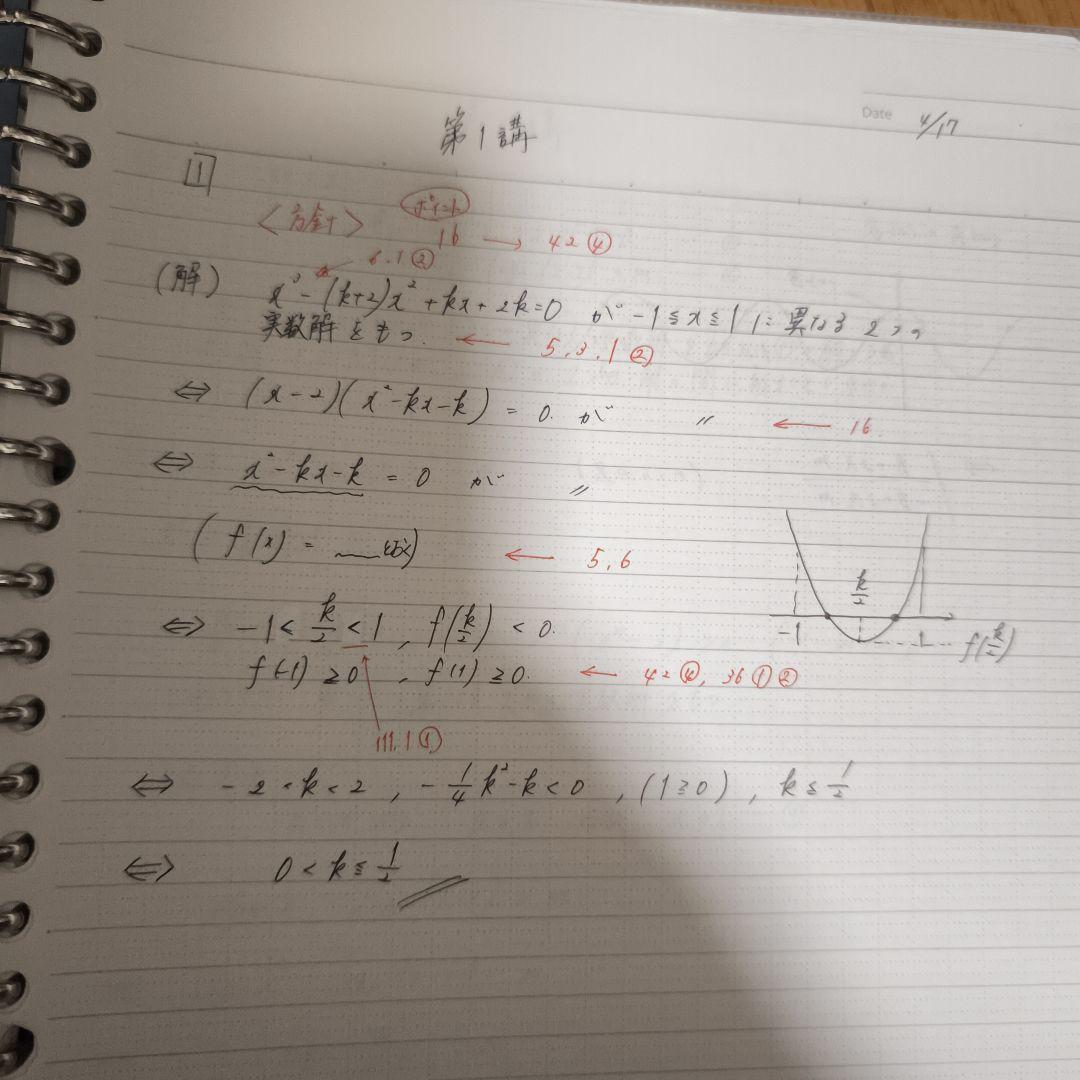 Date 4/17
第1講
1
〈方針〉
16 → 42④
6.1②
(解) x³-(k+2)x²+kx+2k=0 が -1≦x≦1に異なる2つの
実数解をもつ. ← 5,3,1②
⇔ (x-2)(x²-kx-k)=0 が 〃 ← 16.
⇔ x²-kx-k=0 が 〃
(f(x)= ← 5,6
⇔ -1<k/2<1, f(k/2)<0.
f(-1)≧0, f(1)≧0. ← 42④, 36①②
111.1①
⇔ -2<k<2, -1/4k²-k<0, (1≧0), k≦1/2
⇔ 0<k≦1/2
k/2
-1 1 f(k/2)